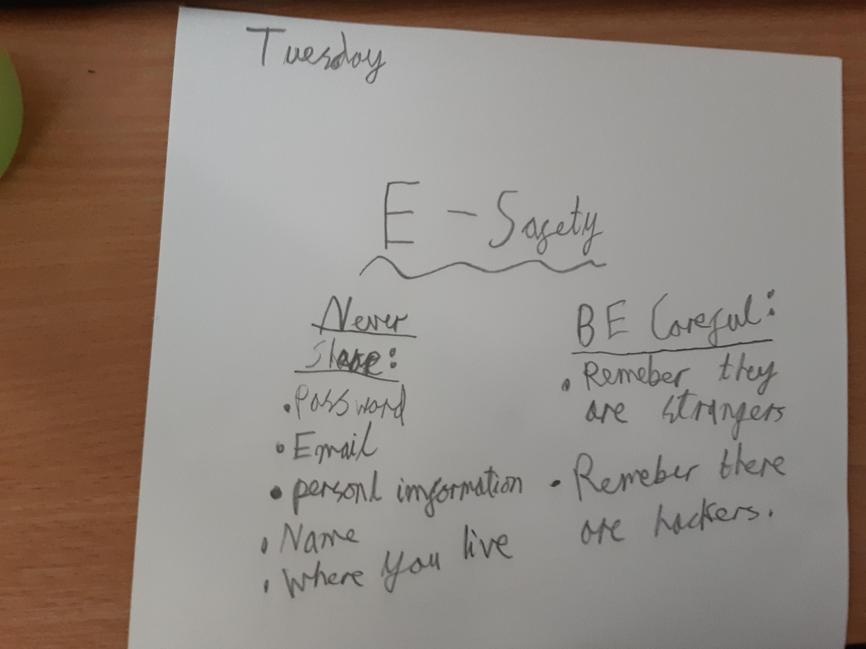 Tuesday
E - Safety
Never
Share:
• Password
• Email
• personl imformation
• Name
• Where you live
BE Careful:
• Remeber they
are strangers
• Remeber there
are hackers.